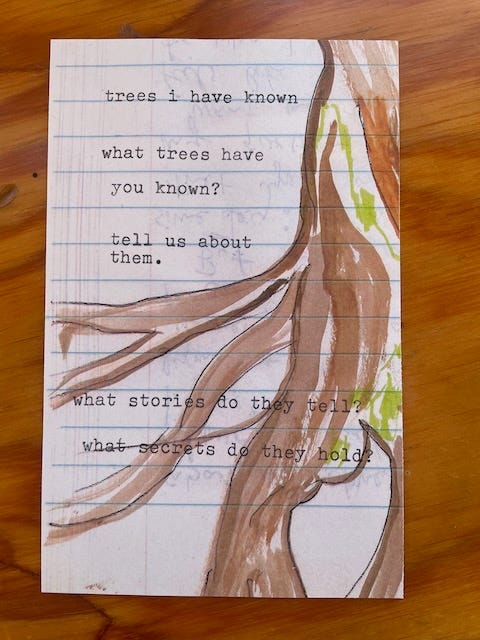 trees i have known
what trees have
you known?
tell us about
them.
what stories do they tell?
what secrets do they hold?